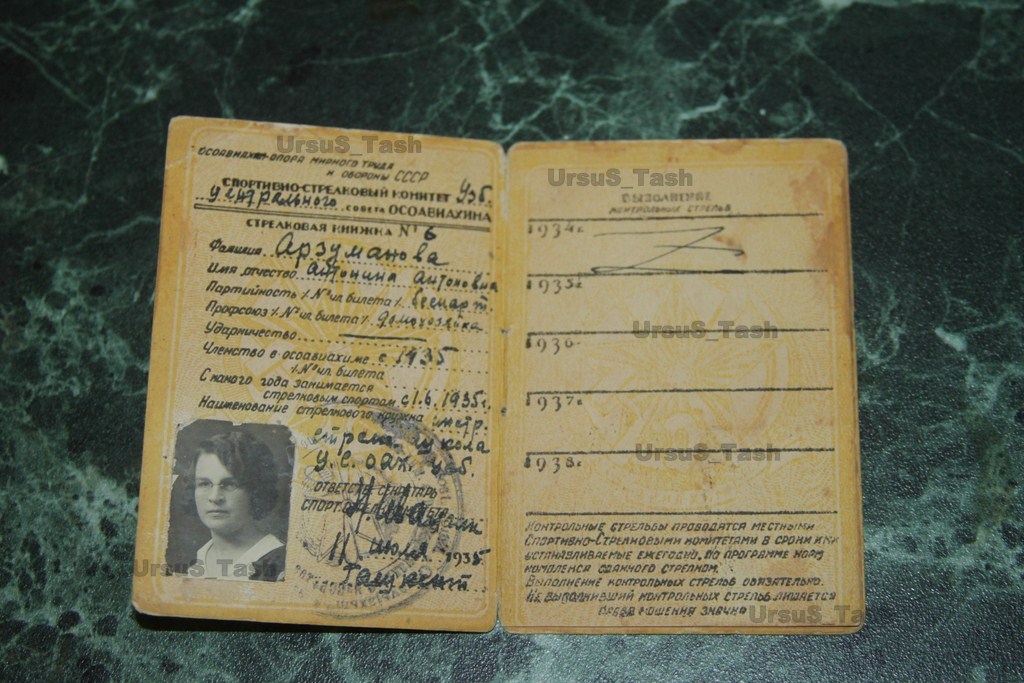 UrsuS_Tash
ОСОАВИАХИМ-ОПОРА МИРНОГО ТРУДА
И ОБОРОНЫ СССР
СПОРТИВНО-СТРЕЛКОВЫЙ КОМИТЕТ Узб.
Центрального СОВЕТА ОСОАВИАХИМА
СТРЕЛКОВАЯ КНИЖКА № 6
Фамилия Арзуманова
Имя отчество Антонина Антоновна
Партийность /№ чл. билета/ беспарт.
Профсоюз /№ чл. билета/ домохозяйка
Ударничество
Членство в осоавиахиме с 1935
/№ чл. билета
С какого года занимается
стрелковым спортом с 1.6.1935г.
Наименование стрелкового кружка инстр.
стрелк. школа
У.С. ОАХ. Узб.
ОТВЕТСТВ. СЕКРЕТАРЬ
11 июля 1935
Ташкент
UrsuS_Tash
UrsuS_Tash
ВЫПОЛНЕНИЕ
КОНТРОЛЬНЫХ СТРЕЛЬБ
1934г.
1935г.
1936г.
UrsuS_Tash
1937г.
1938г.
UrsuS_Tash
КОНТРОЛЬНЫЕ СТРЕЛЬБЫ ПРОВОДЯТСЯ МЕСТНЫМИ
СПОРТИВНО-СТРЕЛКОВЫМИ КОМИТЕТАМИ В СРОКИ ИМИ
УСТАНАВЛИВАЕМЫЕ ЕЖЕГОДНО, ПО ПРОГРАММЕ НОРМ
КОМПЛЕКСА СДАННОГО СТРЕЛКОМ.
ВЫПОЛНЕНИЕ КОНТРОЛЬНЫХ СТРЕЛЬБ ОБЯЗАТЕЛЬНО.
НЕ ВЫПОЛНИВШИЙ КОНТРОЛЬНЫХ СТРЕЛЬБ ЛИШАЕТСЯ
ПРАВА НОШЕНИЯ ЗНАЧКА
UrsuS_Tash